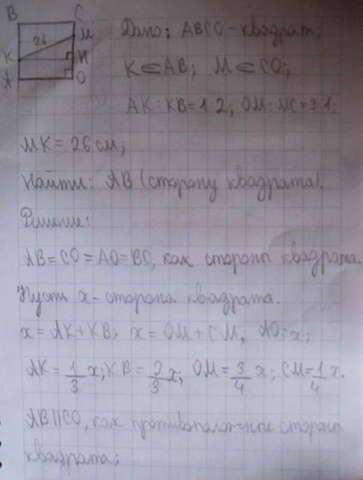 B C
Дано: ABCO - квадрат;
26 M
K H
K∈AB; M∈CO;
A O
AK:KB=1:2, OM:MC=3:1;
MK=26 см;
Найти: AB (сторону квадрата).
Решение:
AB=CO=AO=BC, как стороны квадрата.
Пусть x - сторона квадрата.
x=AK+KB; x=OM+CM, AO=x;
AK=1/3 x; KB=2/3 x; OM=3/4 x; CM=1/4 x.
AB||CO, как противоположные стороны
квадрата;